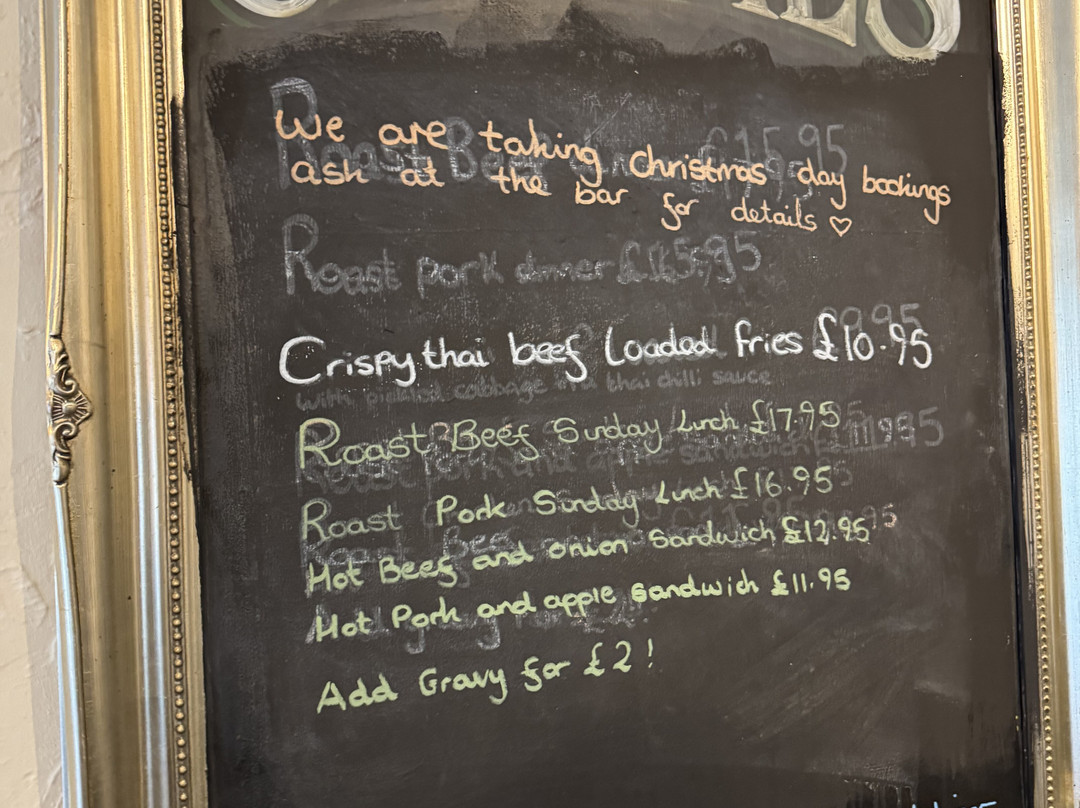 We are taking christmas day bookings
ask at the bar for details ♡
Roast pork dinner £15.95
Crispy thai beef Loaded fries £10.95
with pickled cabbage in a thai chilli sauce
Roast Beef Sunday Lunch £17.95
Roast Pork Sunday Lunch £16.95
Hot Beef and onion Sandwich £12.95
Hot Pork and apple sandwich £11.95
Add Gravy for £2!